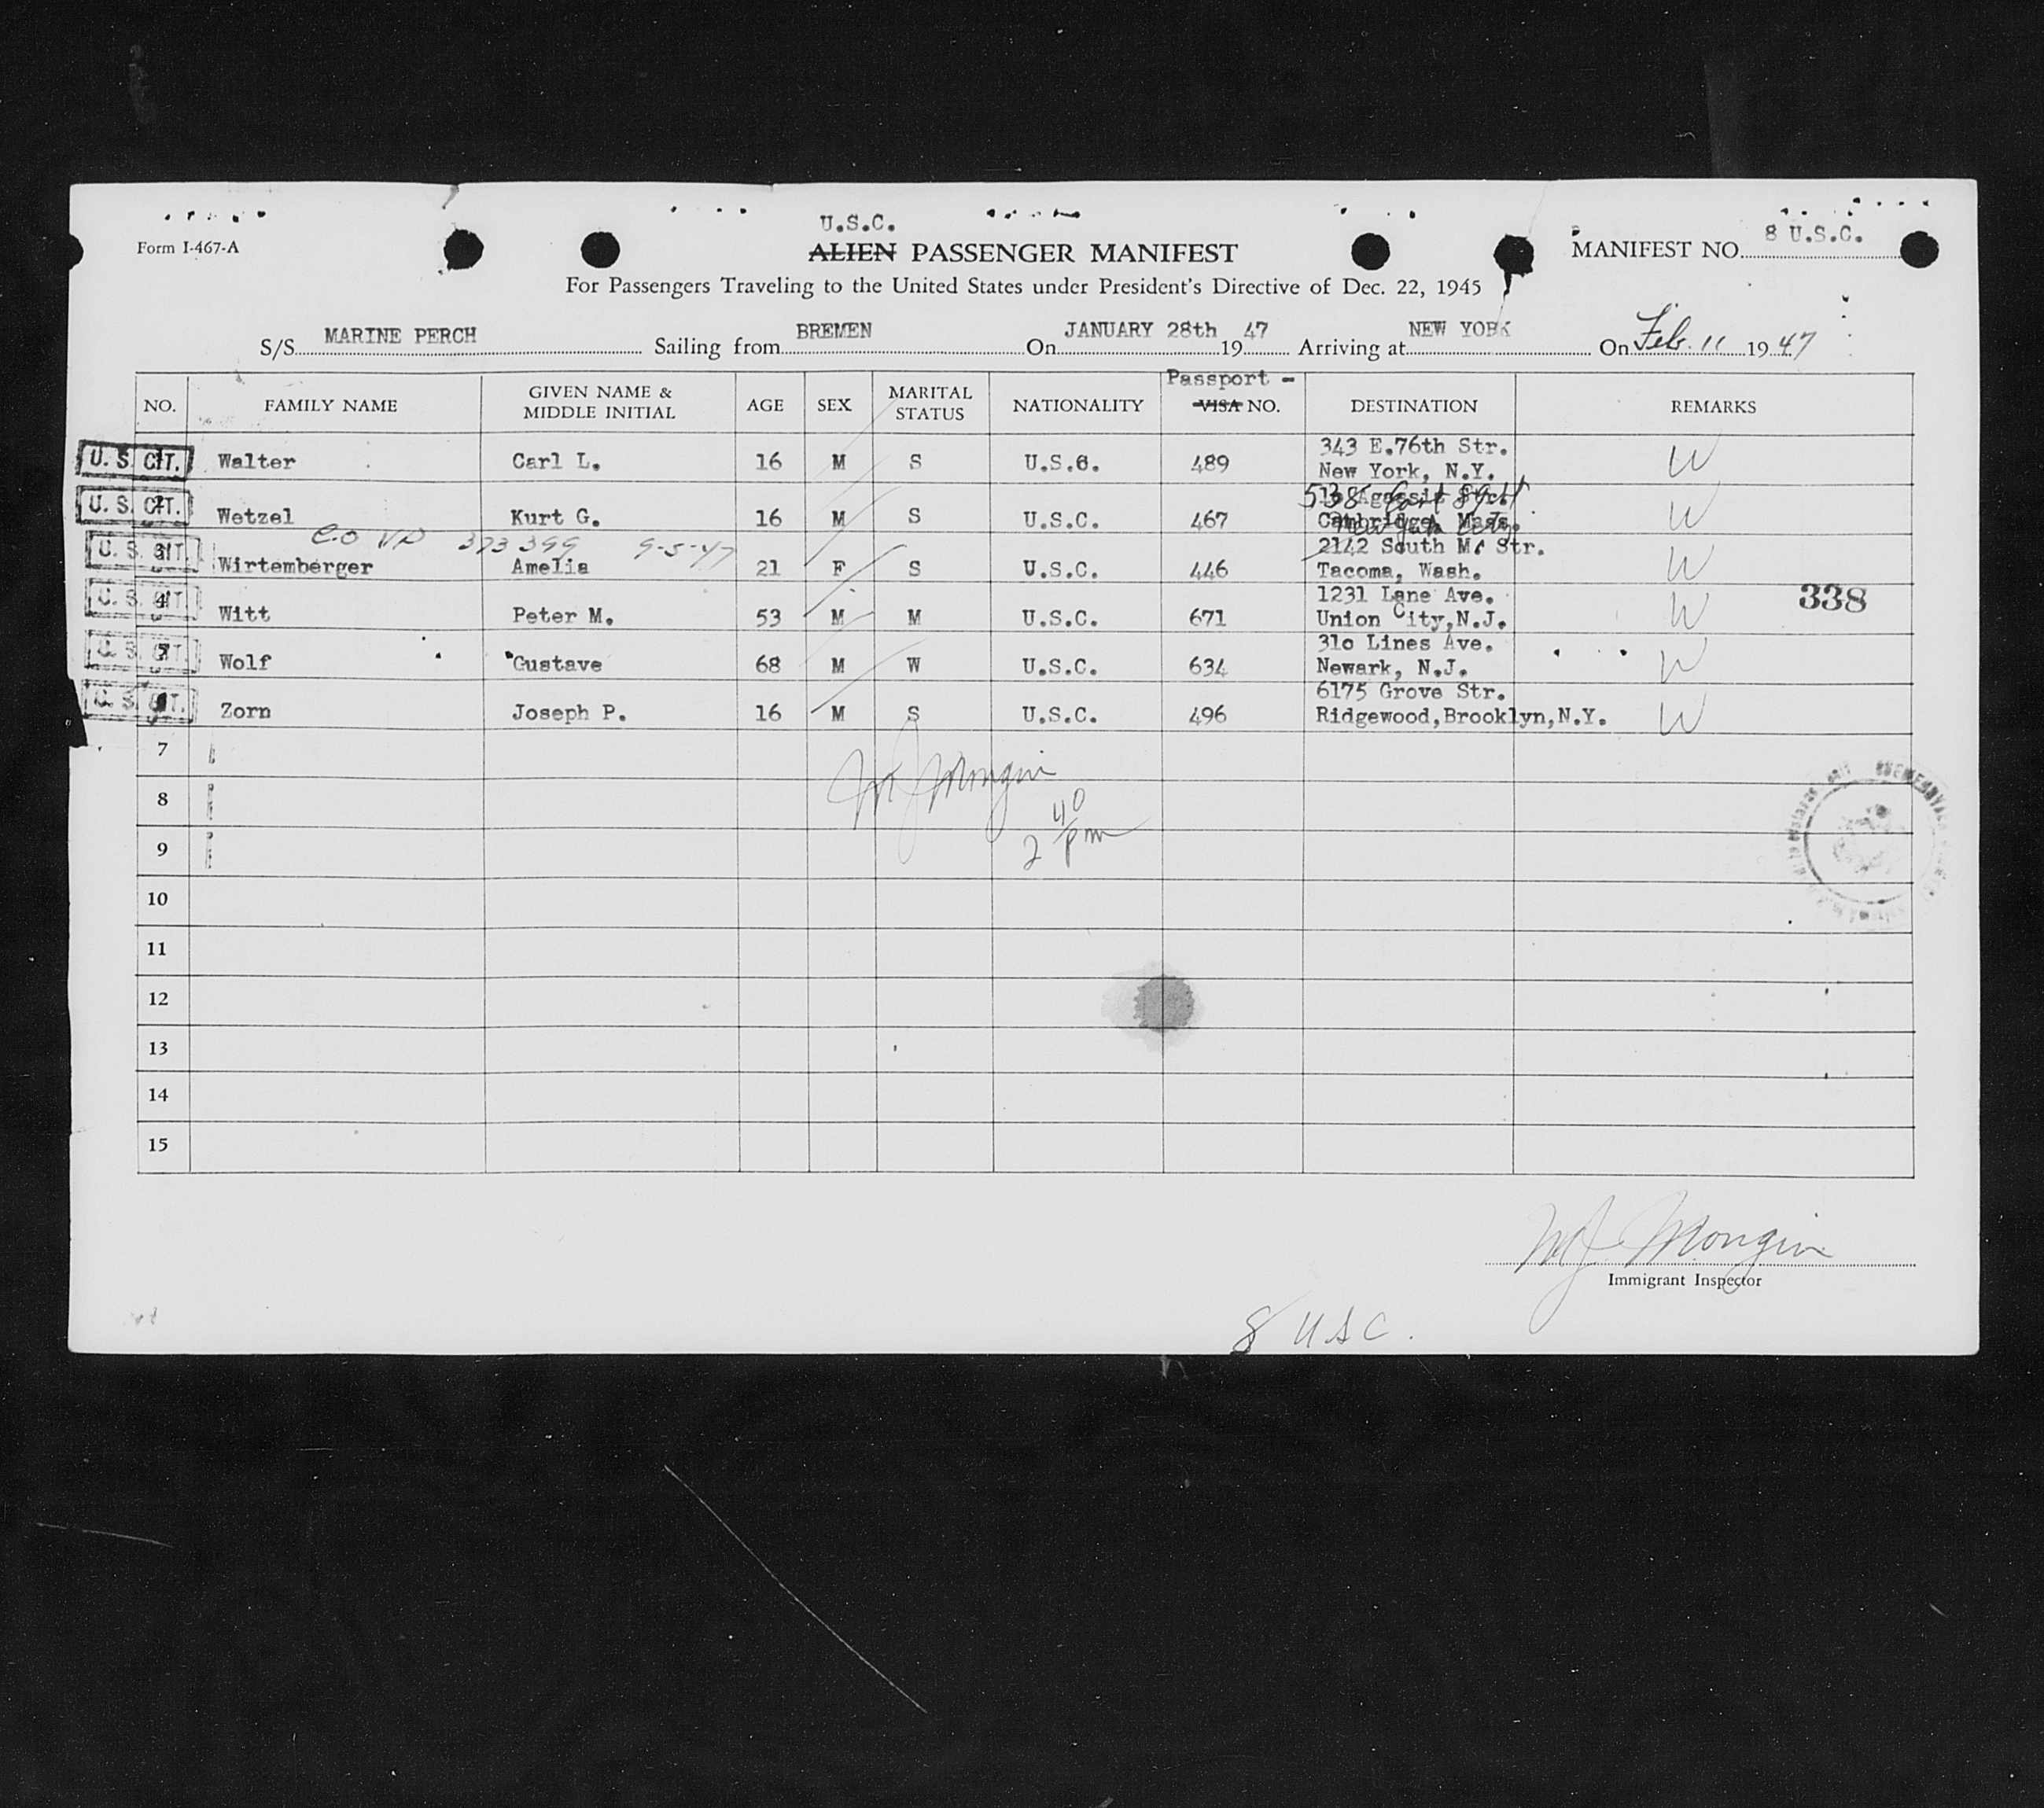 U.S.C.
Form I-467-A ALIEN PASSENGER MANIFEST MANIFEST NO. 8 U.S.C.
For Passengers Traveling to the United States under President's Directive of Dec. 22, 1945
S/S MARINE PERCH Sailing from BREMEN On JANUARY 28th 1947 Arriving at NEW YORK On Feb. 11 1947
Passport -
NO. FAMILY NAME GIVEN NAME & MIDDLE INITIAL AGE SEX MARITAL STATUS NATIONALITY VISA NO. DESTINATION REMARKS
343 E.76th Str.
U.S. CIT. Walter Carl L. 16 M S U.S.C. 489 New York, N.Y. W
538 East 89 St
U.S. CIT. Wetzel Kurt G. 16 M S U.S.C. 467 Cambridge, Mass. W
New York City
C.O VD 373399 9-5-47
2142 South M. Str.
U.S. CIT. Wirtemberger Amelia 21 F S U.S.C. 446 Tacoma, Wash. W
1231 Lane Ave.
338
U.S. CIT. Witt Peter M. 53 M M U.S.C. 671 Union City,N.J. W
31o Lines Ave.
U.S. CIT. Wolf Gustave 68 M W U.S.C. 634 Newark, N.J. W
6175 Grove Str.
U.S. CIT. Zorn Joseph P. 16 M S U.S.C. 496 Ridgewood,Brooklyn,N.Y. W
7
WJ Mongin
8
2 40 pm
9
10
11
12
13
14
15
WJ Mongin
Immigrant Inspector
8 USC.